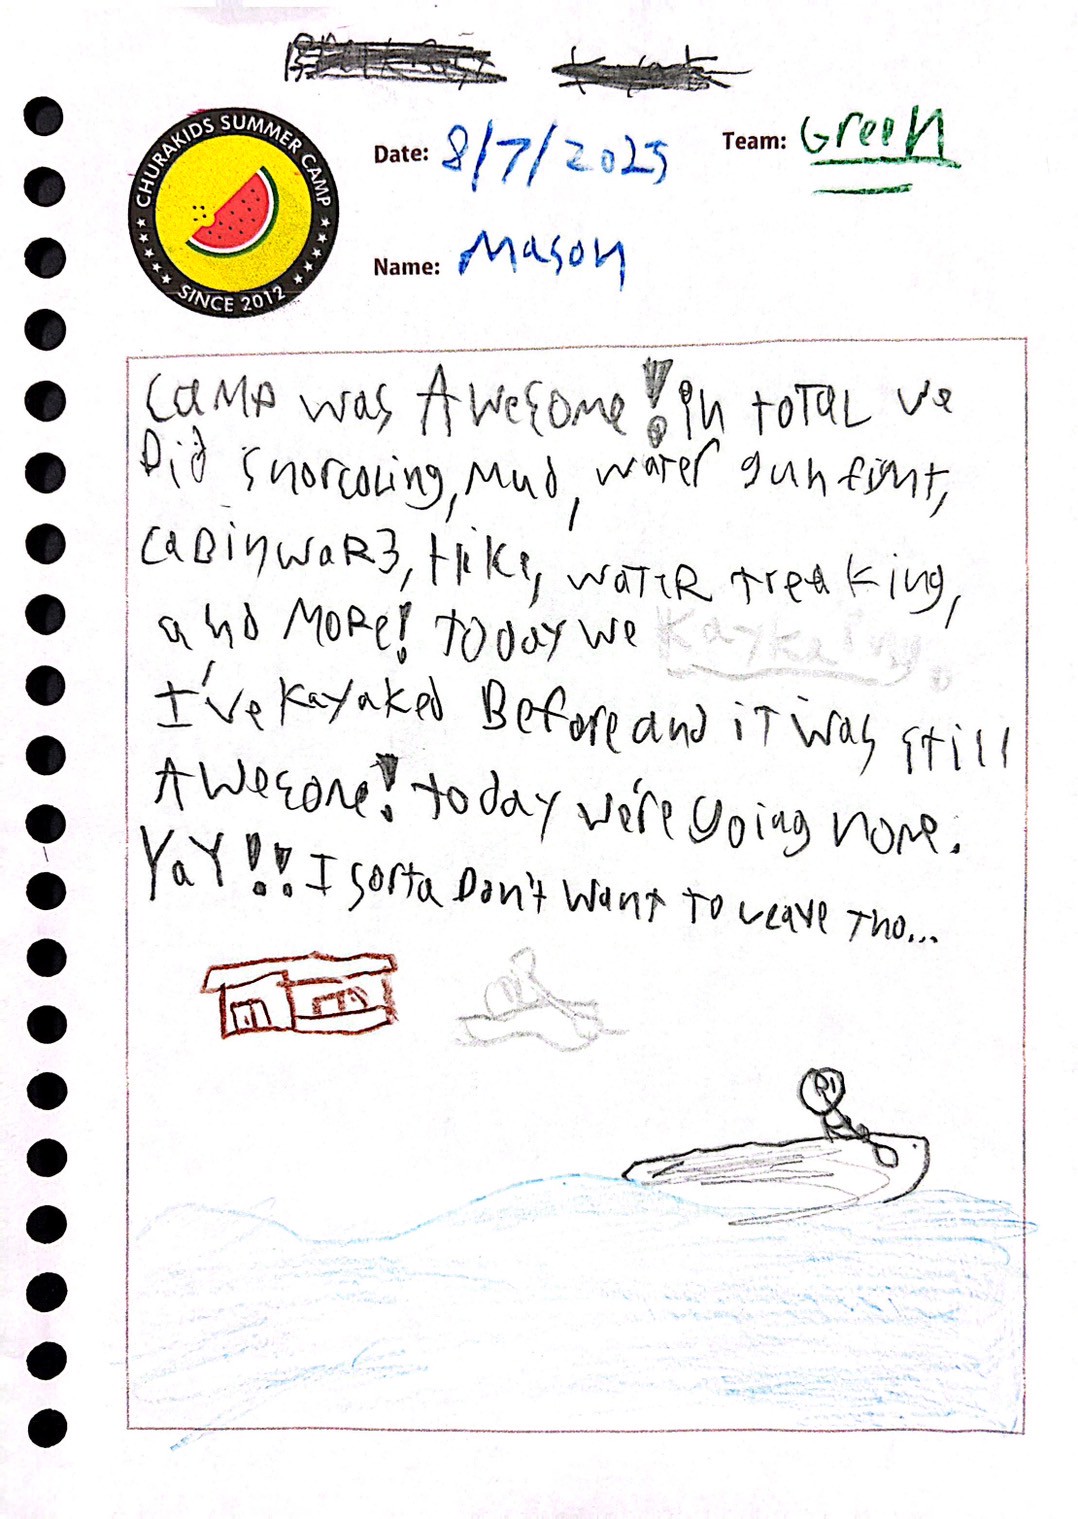 CHURAKIDS SUMMER CAMP
SINCE 2012
Date: 8/7/2025
Team: Green
Name: Mason
Camp was Awesome! In total we
Did snorcoling, Mud, water gun fight,
Cabinwars, Hike, water treaking,
and More! today we Kaykaing.
I've kayaked Before and it was still
Awesome! today we're going home.
YaY!! I sorta Don't want to leave tho...